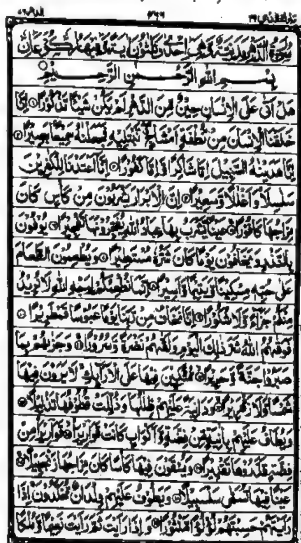 سُوْرَةُ الدَّهْرِ مَدَنِيَّةٌ وَّهِيَ اِحْدٰى وَثَلٰثُوْنَ اٰيَةً وَّفِيْهَا رُكُوْعَانِ
بِسْمِ اللّٰهِ الرَّحْمٰنِ الرَّحِيْمِ
هَلْ اَتٰى عَلَى الْاِنْسَانِ حِيْنٌ مِّنَ الدَّهْرِ لَمْ يَكُنْ شَيْئًا مَّذْكُوْرًا اِنَّا
خَلَقْنَا الْاِنْسَانَ مِنْ نُّطْفَةٍ اَمْشَاجٍ نَّبْتَلِيْهِ فَجَعَلْنٰهُ سَمِيْعًا بَصِيْرًا
اِنَّا هَدَيْنٰهُ السَّبِيْلَ اِمَّا شَاكِرًا وَّاِمَّا كَفُوْرًا اِنَّا اَعْتَدْنَا لِلْكٰفِرِيْنَ
سَلٰسِلَا وَاَغْلٰلًا وَّسَعِيْرًا اِنَّ الْاَبْرَارَ يَشْرَبُوْنَ مِنْ كَاْسٍ كَانَ
مِزَاجُهَا كَافُوْرًا عَيْنًا يَّشْرَبُ بِهَا عِبَادُ اللّٰهِ يُفَجِّرُوْنَهَا تَفْجِيْرًا يُوْفُوْنَ
بِالنَّذْرِ وَيَخَافُوْنَ يَوْمًا كَانَ شَرُّهٗ مُسْتَطِيْرًا وَيُطْعِمُوْنَ الطَّعَامَ
عَلٰى حُبِّهٖ مِسْكِيْنًا وَّيَتِيْمًا وَّاَسِيْرًا اِنَّمَا نُطْعِمُكُمْ لِوَجْهِ اللّٰهِ لَا نُرِيْدُ
مِنْكُمْ جَزَآءً وَّلَا شُكُوْرًا اِنَّا نَخَافُ مِنْ رَّبِّنَا يَوْمًا عَبُوْسًا قَمْطَرِيْرًا
فَوَقٰهُمُ اللّٰهُ شَرَّ ذٰلِكَ الْيَوْمِ وَلَقّٰهُمْ نَضْرَةً وَّسُرُوْرًا وَجَزٰهُمْ بِمَا
صَبَرُوْا جَنَّةً وَّحَرِيْرًا مُّتَّكِـِٕيْنَ فِيْهَا عَلَى الْاَرَآئِكِ لَا يَرَوْنَ فِيْهَا
شَمْسًا وَّلَا زَمْهَرِيْرًا وَدَانِيَةً عَلَيْهِمْ ظِلٰلُهَا وَذُلِّلَتْ قُطُوْفُهَا تَذْلِيْلًا
وَيُطَافُ عَلَيْهِمْ بِاٰنِيَةٍ مِّنْ فِضَّةٍ وَّاَكْوَابٍ كَانَتْ قَوَارِيْرَا قَوَارِيْرَا مِنْ
فِضَّةٍ قَدَّرُوْهَا تَقْدِيْرًا وَيُسْقَوْنَ فِيْهَا كَاْسًا كَانَ مِزَاجُهَا زَنْجَبِيْلًا
عَيْنًا فِيْهَا تُسَمّٰى سَلْسَبِيْلًا وَيَطُوْفُ عَلَيْهِمْ وِلْدَانٌ مُّخَلَّدُوْنَ اِذَا
رَاَيْتَهُمْ حَسِبْتَهُمْ لُؤْلُؤًا مَّنْثُوْرًا وَاِذَا رَاَيْتَ ثَمَّ رَاَيْتَ نَعِيْمًا وَّمُلْكًا